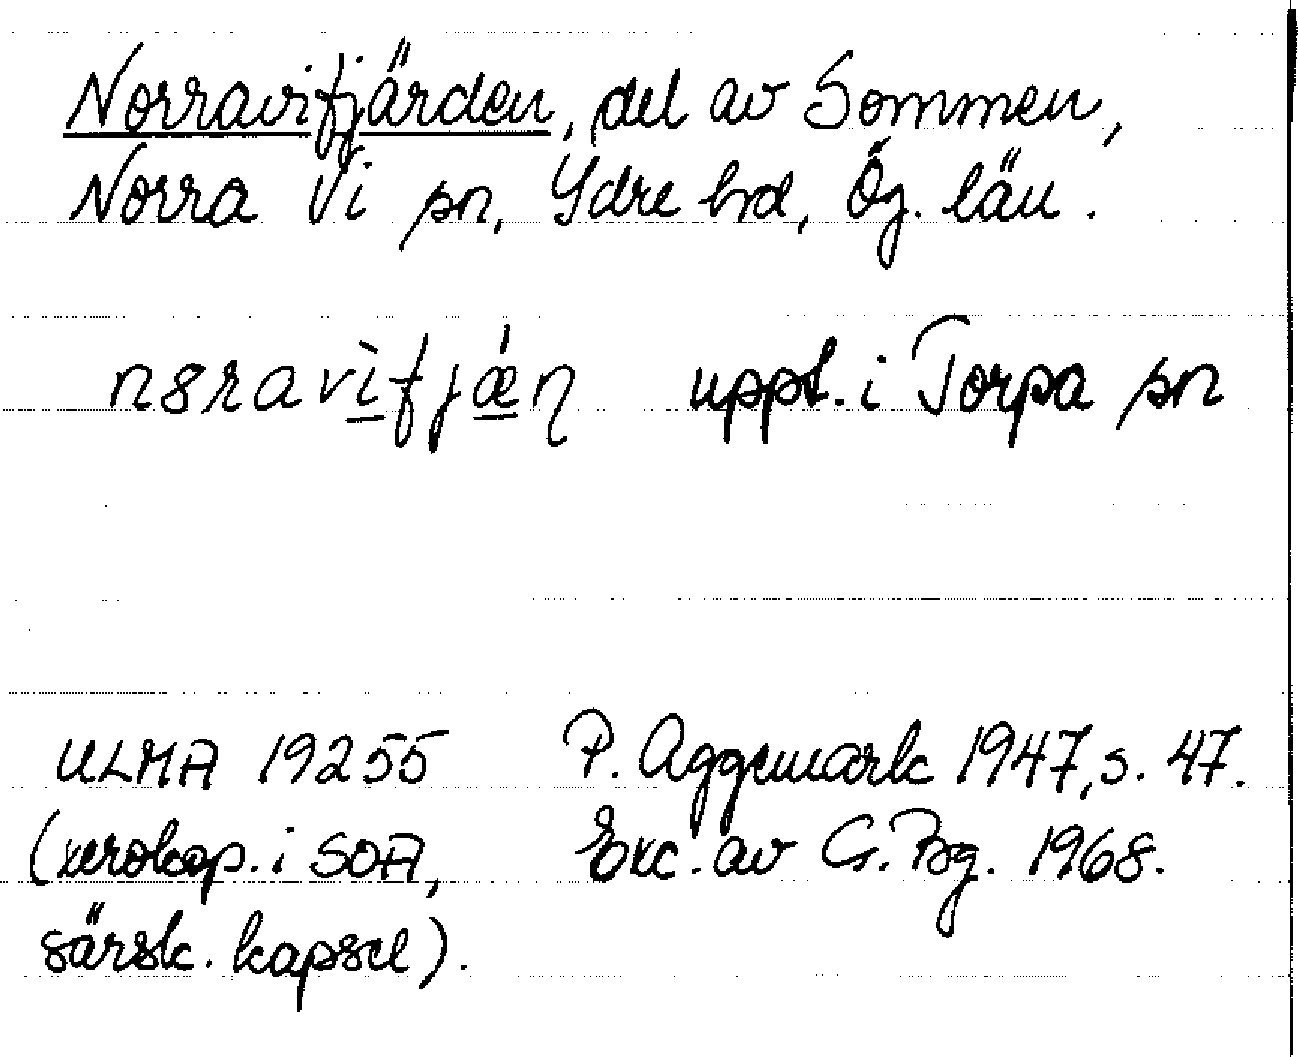 Norravifjärden, del av Sommen,
Norra Vi sn, Ydre hd, Ög. län.
nsravìfjǽn uppt. i Torpa sn
ULMA 19255 P. Aggemark 1947, s. 47.
(xerokop. i SOA, Exc. av G. Bg. 1968.
särsk. kapsel).